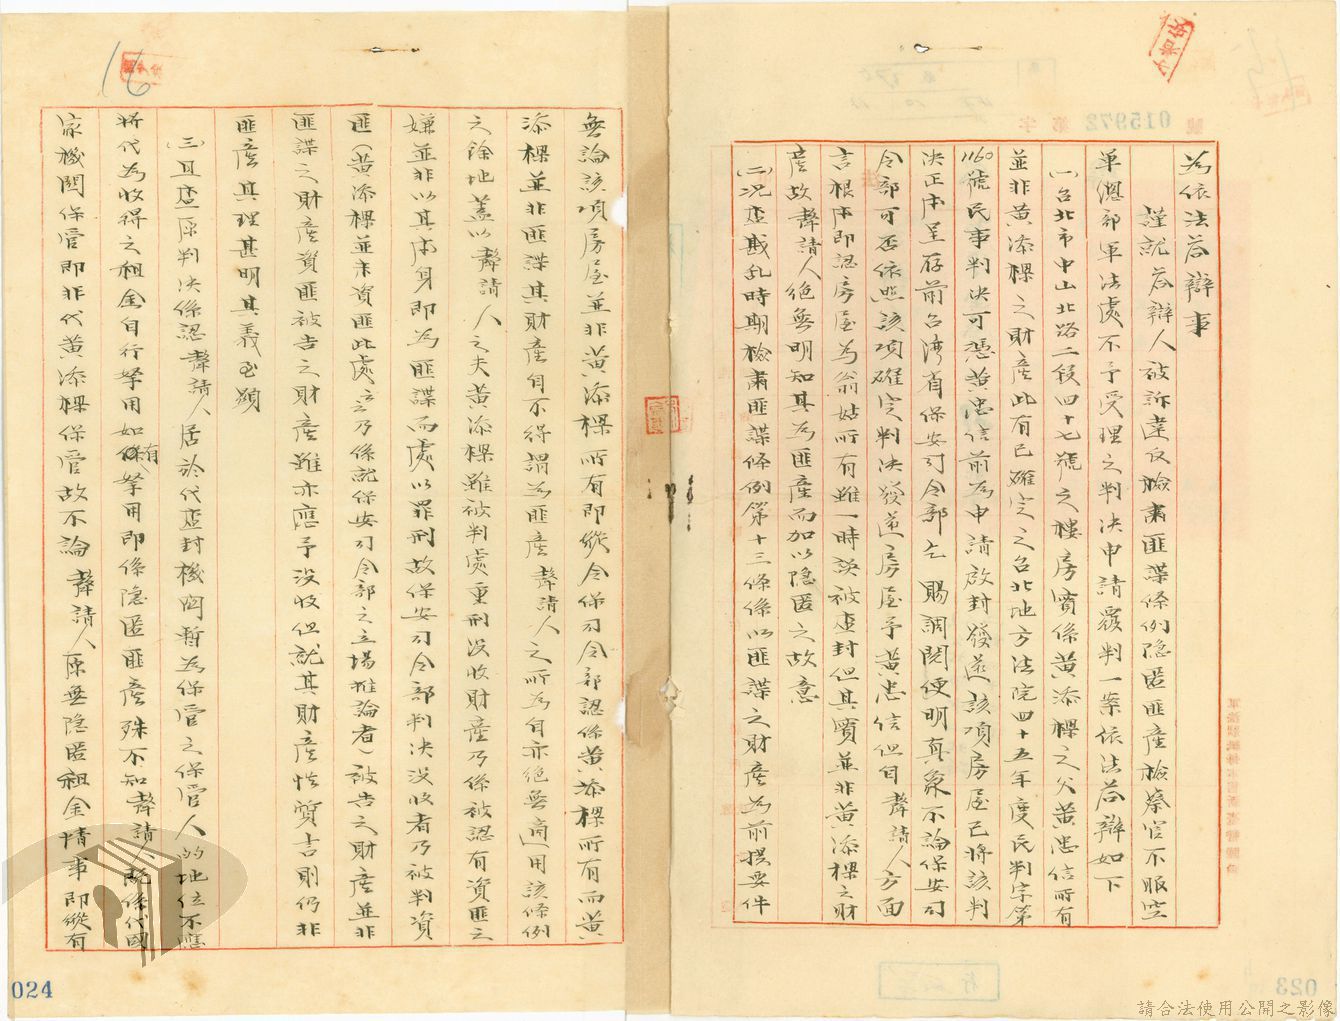 為依法答辯事
謹就答辯人被訴違反檢肅匪諜條例隱匿匪產檢察官不服空
軍總部軍法處不予受理之判決申請覆判一案依法答辯如下
(一)台北市中山北路二段四十七號之樓房實係黃添樑之父黃忠信所有
並非黃添樑之財產此有已確定之台北地方法院四十五年度民判字第
1160號民事判決可憑黃忠信前為申請啟封發還該項房屋已將該判
決正本呈存前台灣省保安司令部乞 賜調閱便明真象不論保安司
令部可否依照該項確定判決發還房屋予黃忠信但自聲請人方面
言根本即認房屋為翁姑所有雖一時誤被查封但其實並非黃添樑之財
產故聲請人絕無明知其為匪產而加以隱匿之故意
(二)況查戡亂時期檢肅匪諜條例第十三條係以匪諜之財產為前提要件
無論該項房屋並非黃添樑所有即縱令保司令部認係黃添樑所有而黃
添樑並非匪諜其財產自不得謂為匪產聲請人之所為自亦絕無適用該條例
之餘地蓋以聲請人之夫黃添樑雖被判處重刑沒收財產乃係被認有資匪之
嫌並非以其本身即為匪諜而處以罪刑故保安司令部判決沒收者乃被判資
匪(黃添樑並未資匪此處云乃係就保安司令部之立場推論者)被告之財產並非
匪諜之財產資匪被告之財產雖亦應予沒收但就其財產性質言則仍非
匪產其理甚明其義至顯
(三)且查原判決係認聲請人居於代查封機關暫為保管之保管人的地位不應
將代為收得之租金自行拏用如有拏用即係隱匿匪產殊不知聲請人既係代國
家機關保管即非代黃添樑保管故不論聲請人原無隱匿租金情事即縱有
16
024
023
015972
第 字 號
請合法使用公開之影像